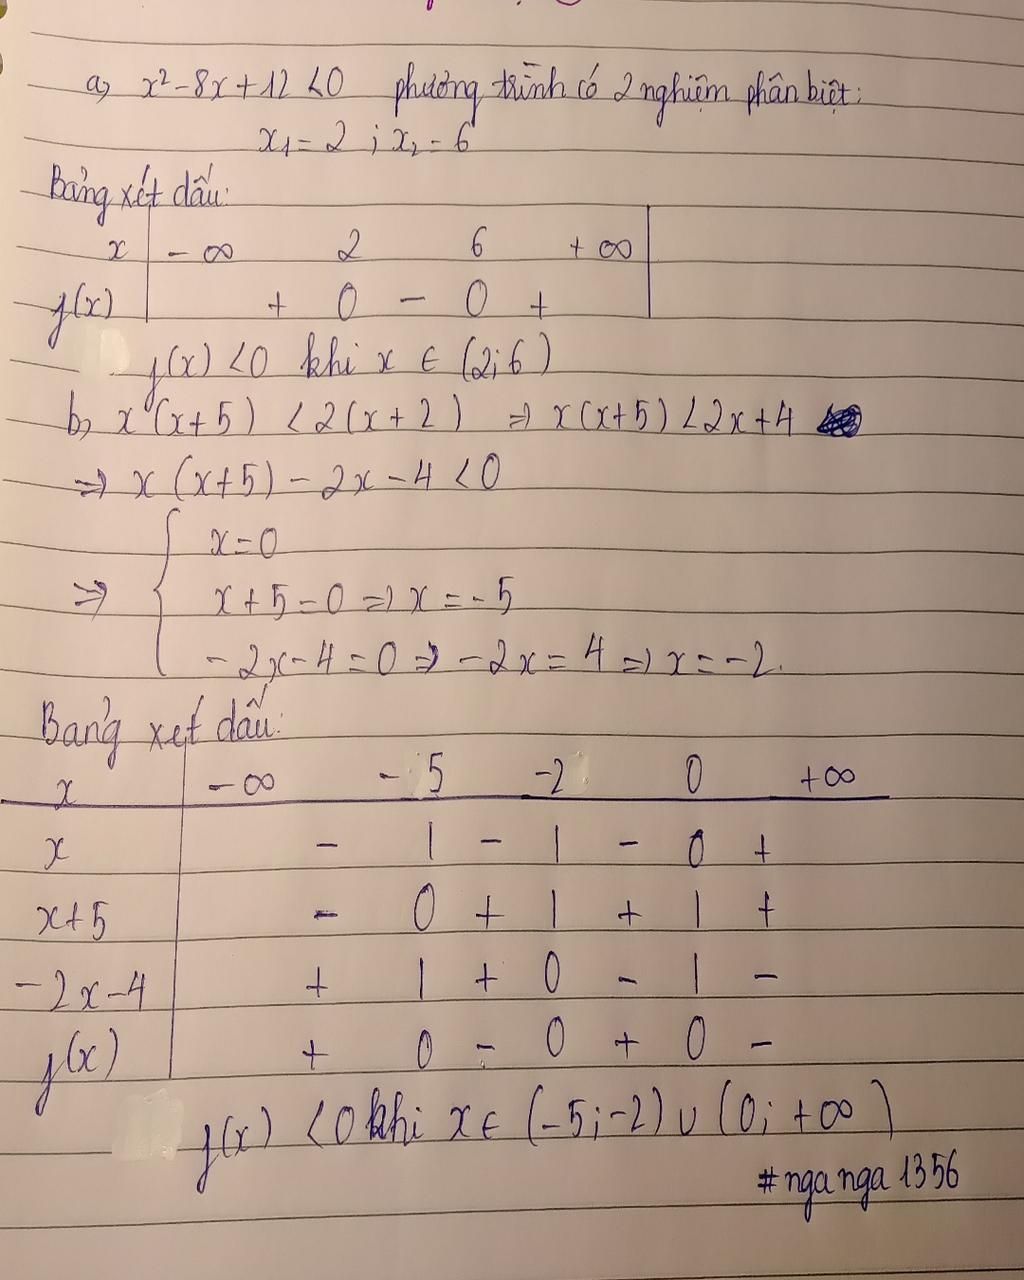 a, x² - 8x + 12 < 0 phương trình có 2 nghiệm phân biệt:
x₁ = 2 ; x₂ = 6
Bảng xét dấu:
x | - ∞ 2 6 + ∞
f(x) | + 0 - 0 +
f(x) < 0 khi x ∈ (2; 6)
b, x (x + 5) < 2(x + 2) ⇒ x(x+5) < 2x + 4
⇒ x (x+5) - 2x - 4 < 0
x = 0
⇒ { x + 5 = 0 ⇒ x = - 5
- 2x - 4 = 0 ⇒ - 2x = 4 ⇒ x = - 2.
Bảng xét dấu:
x | - ∞ - 5 -2 0 + ∞
x | - | - | - 0 +
x + 5 | - 0 + | + | +
- 2x - 4 | + | + 0 - | -
f(x) | + 0 - 0 + 0 -
f(x) < 0 khi x ∈ (-5; -2) ∪ (0; + ∞)
#nganga1356